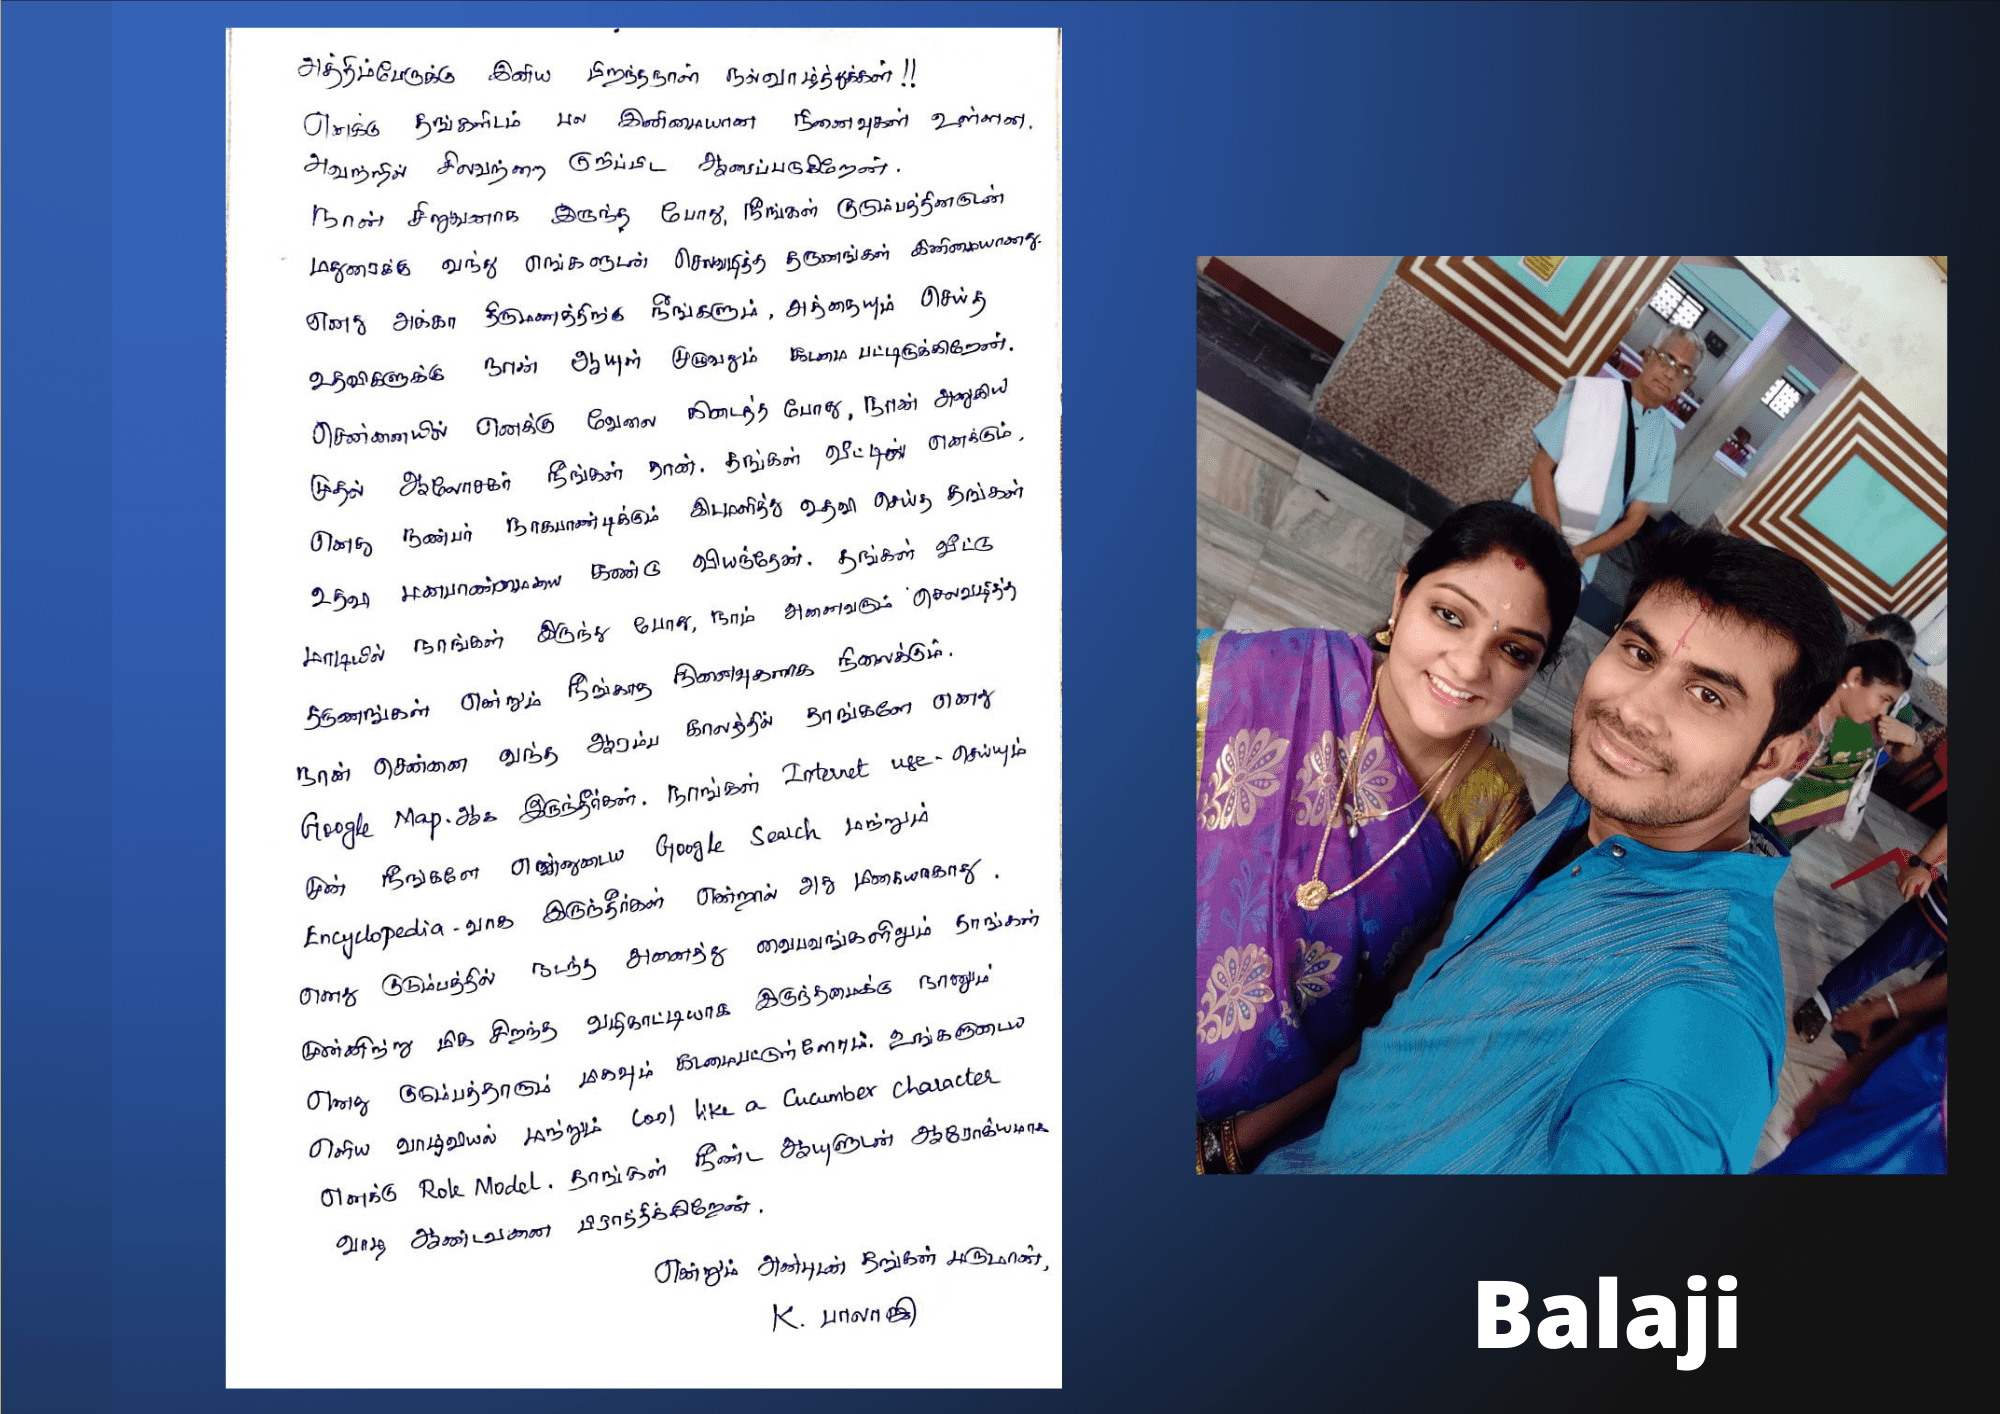 அத்திம்பேருக்கு இனிய பிறந்தநாள் நல்வாழ்த்துக்கள்!!
எனக்கு தங்களிடம் பல இனிமையான நினைவுகள் உள்ளன.
அவற்றில் சிலவற்றை குறிப்பிட ஆசைப்படுகிறேன்.
நான் சிறுவனாக இருந்த போது, நீங்கள் குடும்பத்தினருடன்
மதுரைக்கு வந்து எங்களுடன் செலவழித்த தருணங்கள் இனிமையானது.
எனது அக்கா திருமணத்திற்கு நீங்களும், அத்தையும் செய்த
உதவிகளுக்கு நான் ஆயுள் முழுவதும் கடமை பட்டிருக்கிறேன்.
சென்னையில் எனக்கு வேலை கிடைத்த போது, நான் அணுகிய
முதல் ஆலோசகர் நீங்கள் தான். தங்கள் வீட்டில் எனக்கும்,
எனது நண்பர் நாகபாண்டிக்கும் இடமளித்து உதவி செய்த தங்கள்
உதவி மனபான்மையை கண்டு வியந்தேன். தங்கள் வீட்டு
மாடியில் நாங்கள் இருந்து போது, நாம் அனைவரும் செலவழித்த
தருணங்கள் என்றும் நீங்காத நினைவுகளாக நிலைக்கும்.
நான் சென்னை வந்த ஆரம்ப காலத்தில் தாங்களே எனது
Google Map-ஆக இருந்தீர்கள். நாங்கள் Internet use- செய்யும்
முன் நீங்களே என்னுடைய Google Search மற்றும்
Encyclopedia-வாக இருந்தீர்கள் என்றால் அது மிகையாகாது.
எனது குடும்பத்தில் நடந்த அனைத்து வைபவங்களிலும் தாங்கள்
முன்னிற்று மிக சிறந்த வழிகாட்டியாக இருந்தமைக்கு நானும்
எனது குடும்பத்தாரும் மிகவும் கடமைபட்டுள்ளோம். உங்களுடைய
எளிய வாழ்வியல் மற்றும் Cool like a Cucumber character
எனக்கு Role Model. தாங்கள் நீண்ட ஆயுளுடன் ஆரோக்யமாக
வாழ ஆண்டவனை பிராத்திக்கிறேன்.
என்றும் அன்புடன் தங்கள் மருமான்,
K. பாலாஜி
Balaji